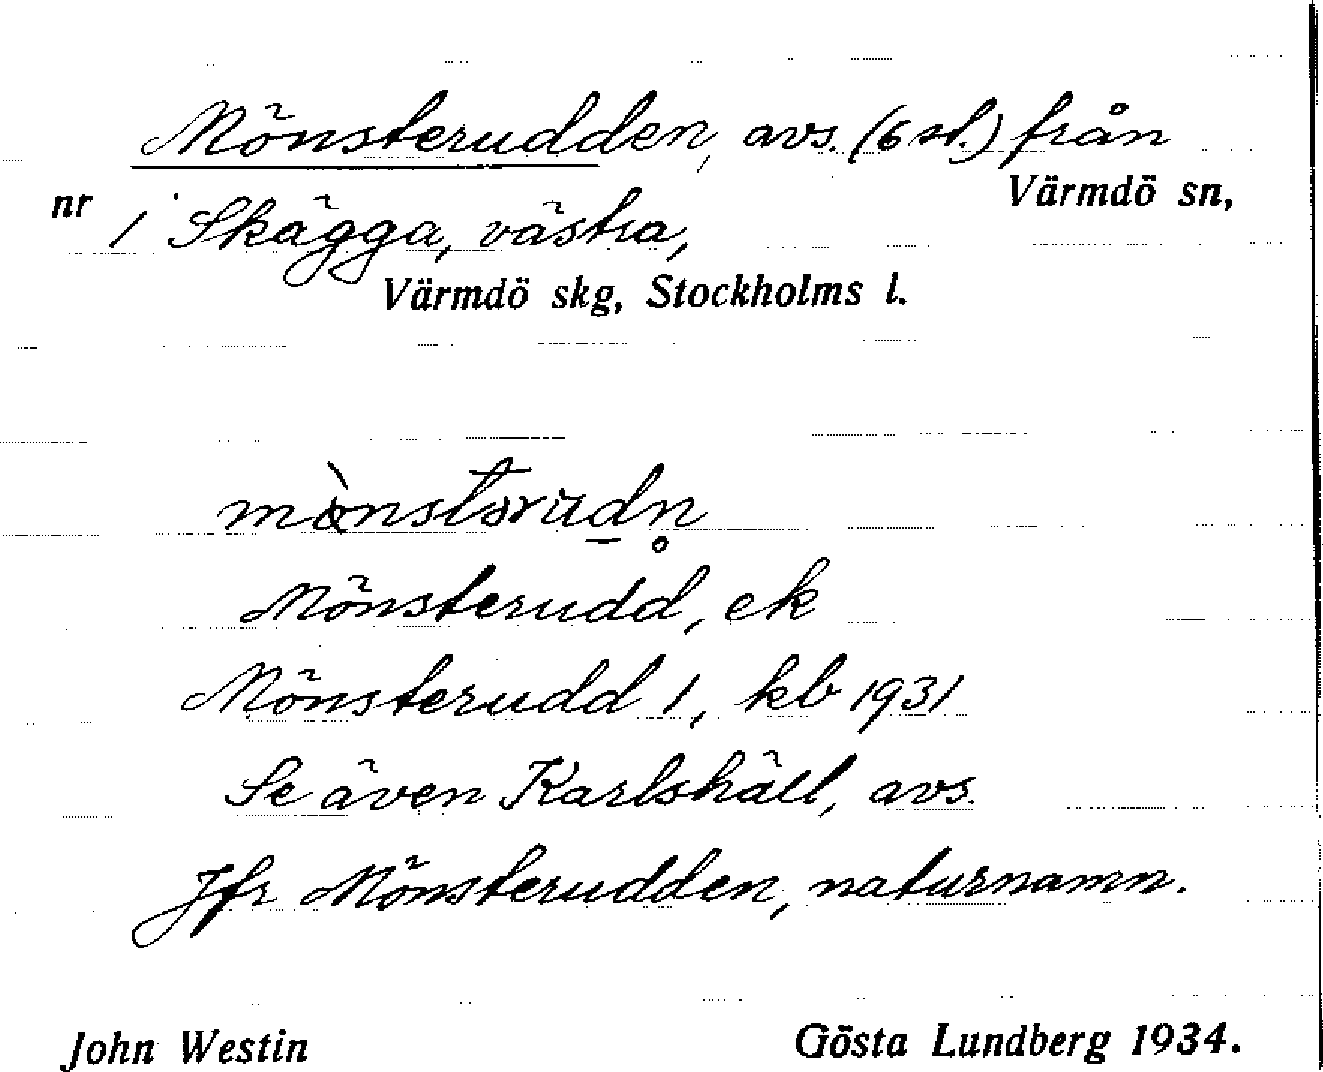 Mönsterudden, avs. (6 st.) från
Värmdö sn,
nr 1 Skägga, västra,
Värmdö skg, Stockholms l.
Mönsterudd, ek
Mönsterudd 1, kb 1931
Se även Karlshäll, avs.
Jfr Mönsterudden, naturnamn.
John Westin Gösta Lundberg 1934.